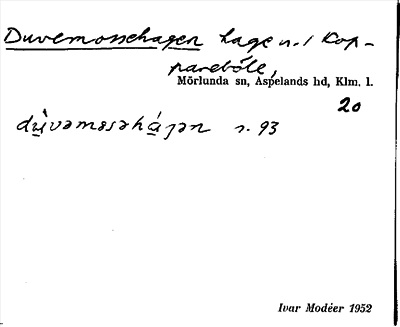 Duvemossehagen hage n. i Kop-
pareböle,
Mörlunda sn, Aspelands hd, Klm. l.
20
dɯ̀vəmosəhá̱gən s. 93
Ivar Modéer 1952